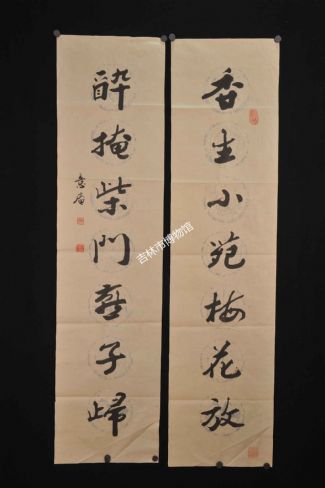 香生小苑梅花放
醉掩柴門燕子歸
吉林市博物馆